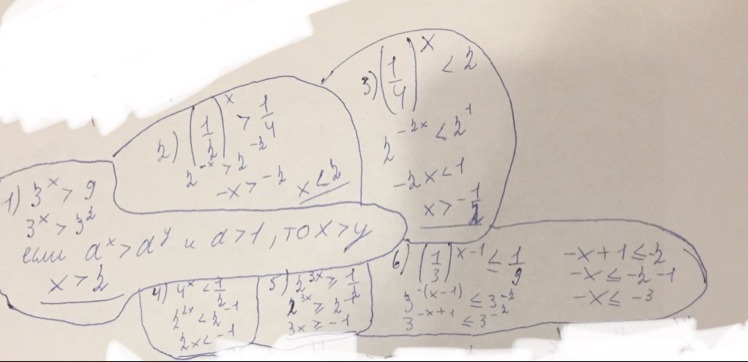 1) 3^x > 9
3^x > 3^2
если a^x > a^y и a > 1, то x > y
x > 2
2) (1/2)^x > 1/4
2^-x > 2^-2
-x > -2
x < 2
3) (1/4)^x < 2
2^-2x < 2^1
-2x < 1
x > -1/2
4) 4^x < 1/2
2^2x < 2^-1
2x < -1
5) 2^3x ≥ 1/2
2^3x ≥ 2^-1
3x ≥ -1
6) (1/3)^x-1 ≤ 1/9
3^-(x-1) ≤ 3^-2
3^-x+1 ≤ 3^-2
-x + 1 ≤ -2
-x ≤ -2 -1
-x ≤ -3